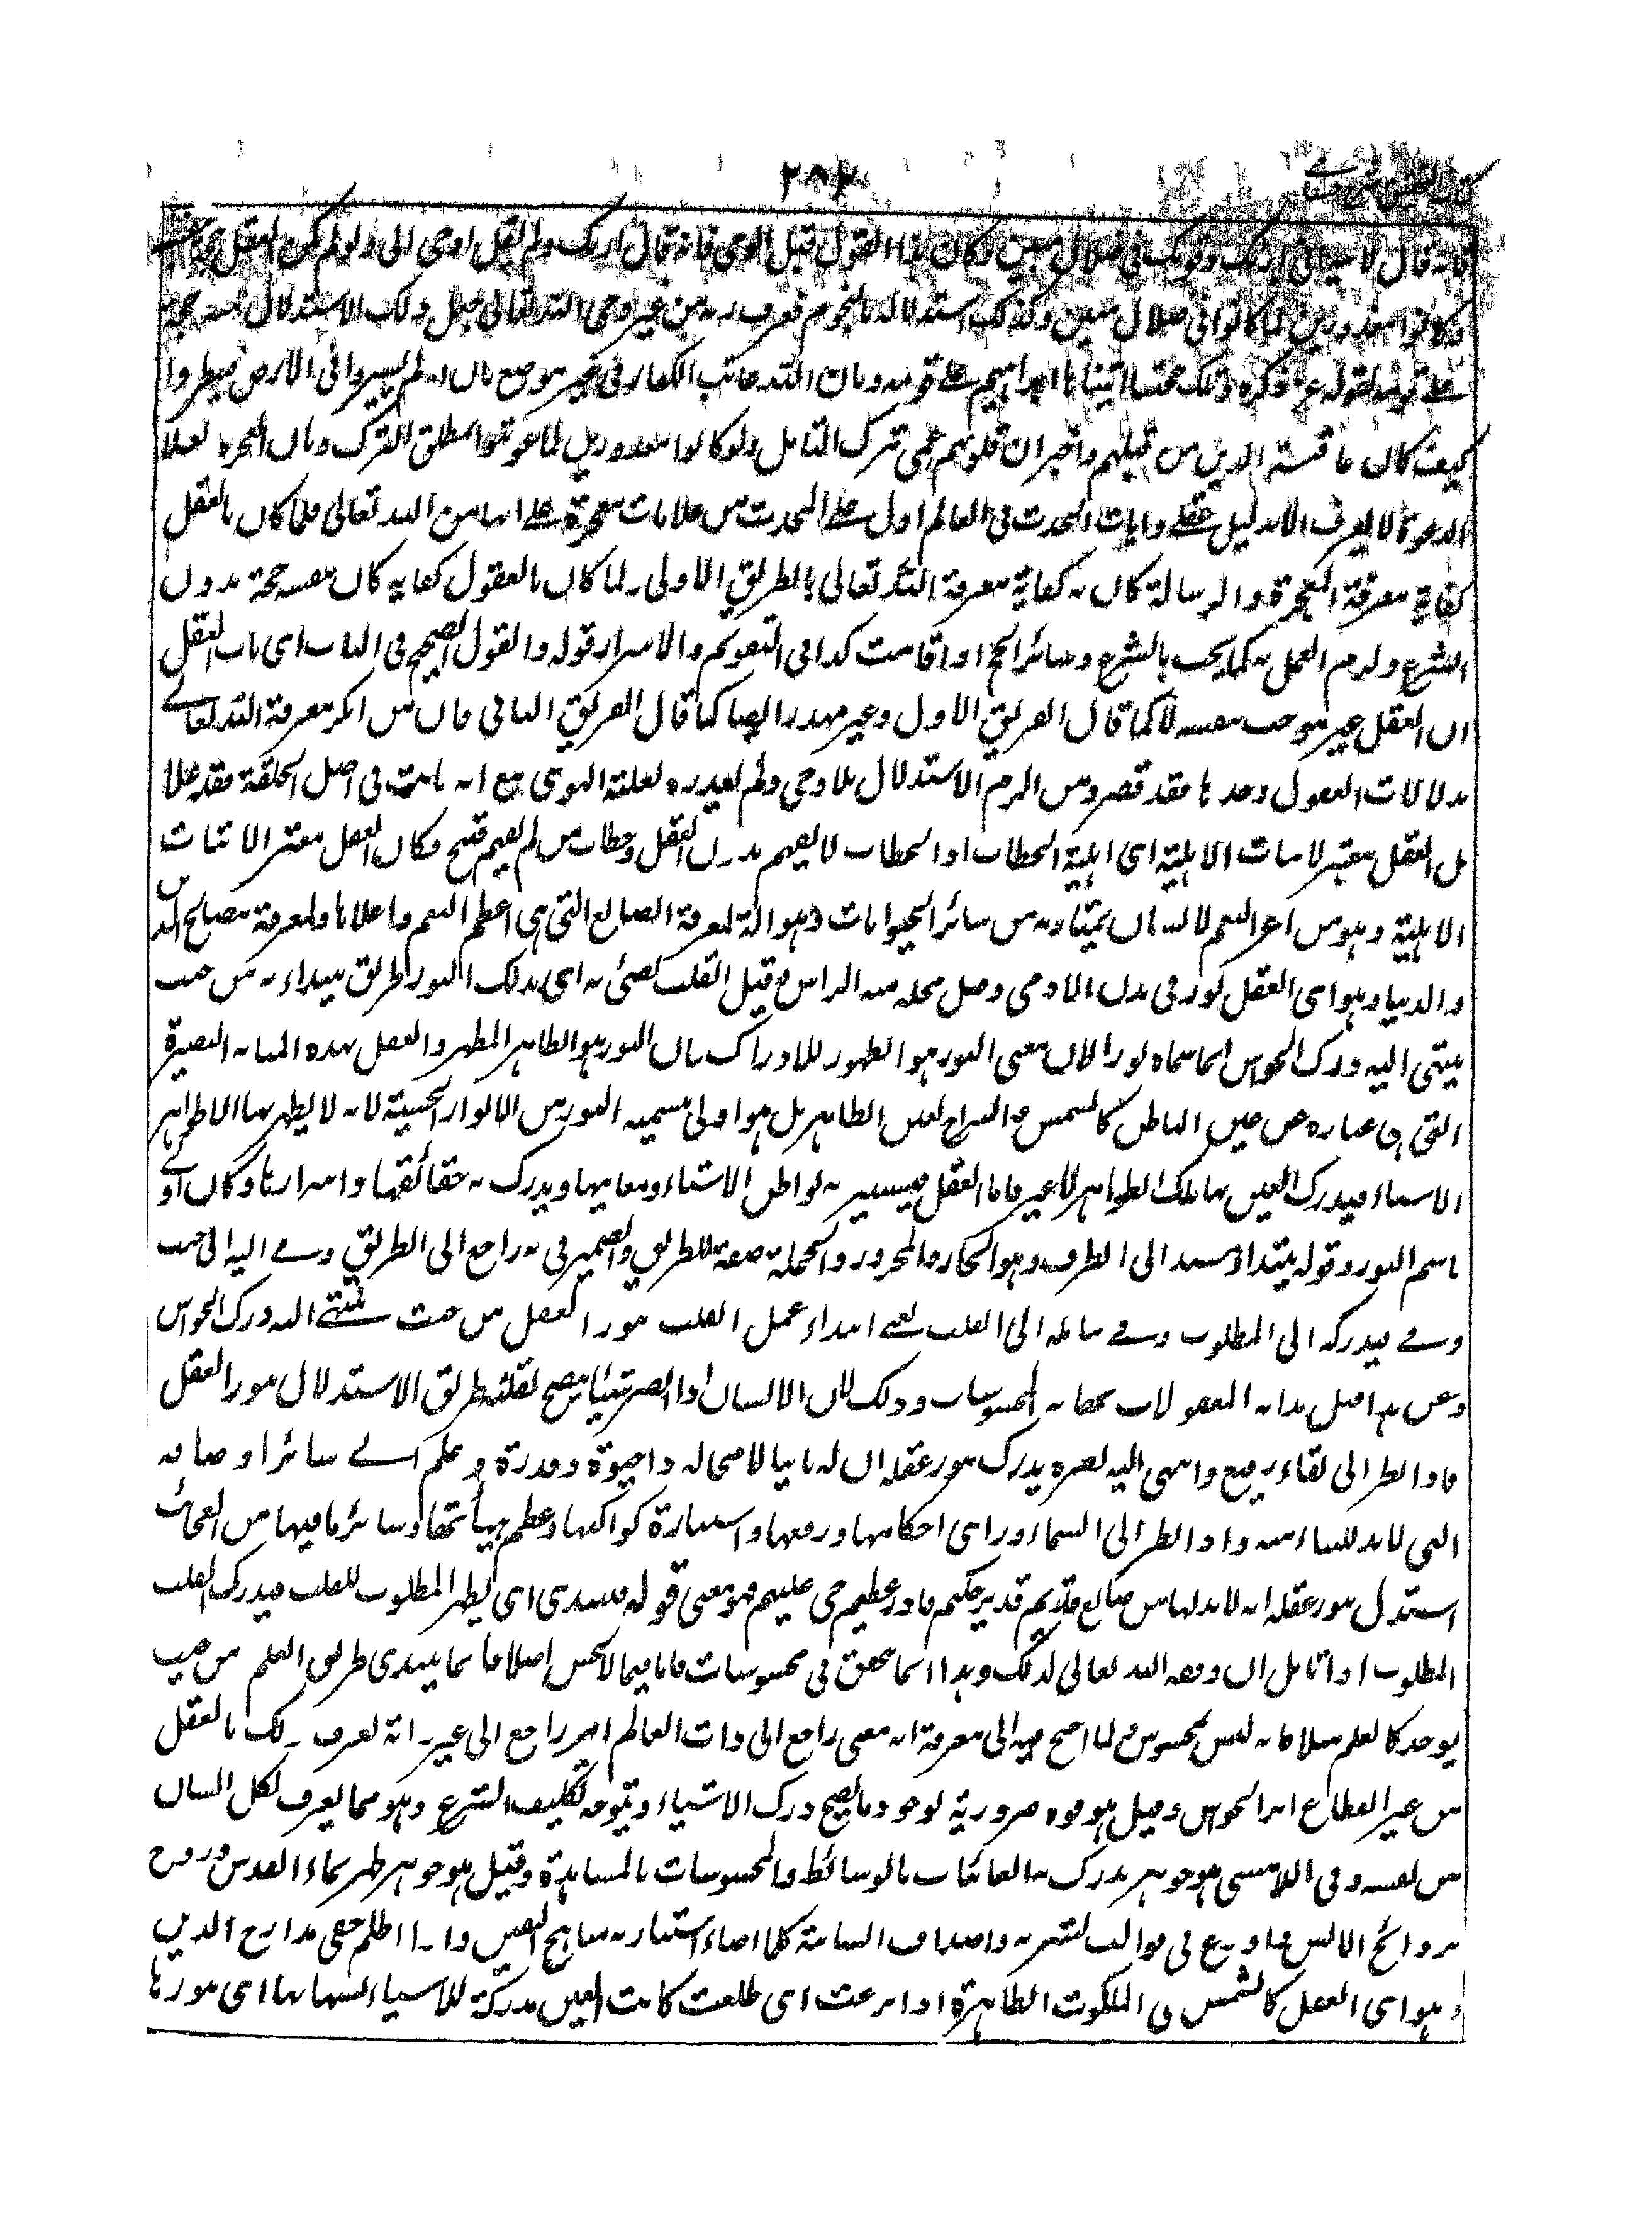 ٢٨٢
فانه قال لابيه اني اراك وقومك في ضلال مبين وكان هذا القول قبل الوحي فانه قال اراك ولم يقل اوحي الي ولو لم يكن العقل حجة
وكانوا معذورين لما كانوا في ضلال مبين وكذلك استدلاله بالنجوم فعرف ربه من غير وحي والله تعالى جعل ذلك الاستدلال منه حجة
على قومه بقوله عز ذكره وتلك حجتنا آتيناها ابراهيم على قومه وبان الله عاتب الكفار في غير موضع بان لم يسيروا في الارض فينظروا
كيف كان عاقبة الذين من قبلهم واخبر ان قلوبهم عمي بترك التأمل ولو كانوا معذورين لما عوتبوا بمطلق الترك وبان المعجزة بعد
الدعوة لا يعرف الا بدليل عقلي وايات الحدث في العالم ادل على المحدث من علامات المعجزة على انها من الله تعالى فلما كان بالعقل
كفاية معرفة المعجزة والرسالة كان به كفاية معرفة الله تعالى بالطريق الاولى ولما كان بالعقول كفاية كان بنفسه حجة بدون
الشرع ولزم العمل به كما يجب بالشرع وسائر الحجج اذا قامت كذا في التقويم والاسرار قوله والقول الصحيح في الباب اي باب العقل
ان العقل غير موجب بنفسه لا كما قال الفريق الاول وغير مهدر ايضا كما قال الفريق الثاني فان من انكر معرفة الله تعالى
بدلالات العقول وحدها فقد قصر ومن الزم الاستدلال بلا وحي ولم يعذره بغلبة الهوى مع انه ثابت في اصل الخلقة فقد غلا
بل العقل معتبر لاثبات الاهلية اي اهلية الخطاب اذ الخطاب لا يفهم بدون العقل وخطاب من لم يفهم قبيح فكان العقل معتبر الاثبات
الاهلية وهو من اعز النعم لان الانسان يمتاز به من سائر الحيوانات وهو آلة لمعرفة الصانع التي هي اعظم النعم واعلاها ولمعرفة مصالح الدين
والدنيا وهو اي العقل نور في بدن الآدمي وصل محله منه الراس وقيل القلب يضيء به اي بذلك النور طريق يبتداء به من حيث
ينتهي اليه درك الحواس انما سماه نورا لان معنى النور هو الظهور للادراك بان النور هو الظاهر المظهر والعقل بهذه المثابة البصيرة
التي هي عبارة عن عين الباطن كالشمس والسراج لعين الظاهر بل هو اولى بتسمية النور من الانوار الحسية لان لا يظهر بها الا ظواهر
الاشياء فيدرك العين بها تلك الظواهر لا غير فاما العقل فيستنير به بواطن الاشياء ومعانيها ويدرك به حقائقها واسرارها وكان اولى
باسم النور وقوله يبتداء مسند الى الظرف وهو الجار والمجرور والجملة صفة للطريق والضمير في به راجع الى الطريق وفي اليه الى حيث
وفي يدركه الى المطلوب وفي تأمله الى القلب يعني ابتداء عمل القلب بنور العقل من حيث ينتهي اليه درك الحواس
وعن هذا قيل بداية المعقولات نهاية المحسوسات وذلك لان الانسان اذا ابصر شيئا يتضح لقلبه طريق الاستدلال بنور العقل
فاذا نظر الى بناء رفيع وانتهى اليه بصره يدرك بنور عقله ان له بانيا لا محالة ذا حيوة وقدرة وعلم الى سائر اوصافه
التي لا بد للبناء منه واذا نظر الى السماء وراى احكامها ورفعها واستنارة كواكبها وعظم هيأتها وسائر ما فيها من العجائب
استدل بنور عقله انه لا بد لها من صانع قديم قدير حكيم قادر عظيم حي عليم فهو معنى قوله فيبتدي اي يظهر المطلوب للقلب فيدرك القلب
المطلوب اذا تأمل ان وفقه الله تعالى لذلك وهذا انما يتحقق في محسوسات فاما فيما لا يحس اصلا فانما يبتدي طريق العلم من حيث
يوجد كالعلم مثلا فانه ليس بمحسوس ولما احتيج فيه الى معرفة انه معنى راجع الى ذات العالم ام راجع الى غير ذاته يعرف ذلك بالعقل
من غير انقطاع اثر الحواس وقيل هو قوة ضرورية بوجودها يصح درك الاشياء ويتوجه تكليف الشرع وهو مما يعرفه كل انسان
من نفسه وفي اللامشي هو جوهر يدرك به الغائبات بالوسائط والمحسوسات بالمشاهدة وقيل هو جوهر طهر بماء القدس وروح
بروائح الانس واودع في قوالب بشرية واصداف انسانية كلما اضاء استنار به مناهج اليقين واذا اظلم خفي مدارج الدين
وهو اي العقل كالشمس في الملكوت الظاهرة اذا بزغت اي طلعت كانت العين مدركة للاشياء بشعاعها اي بنورها